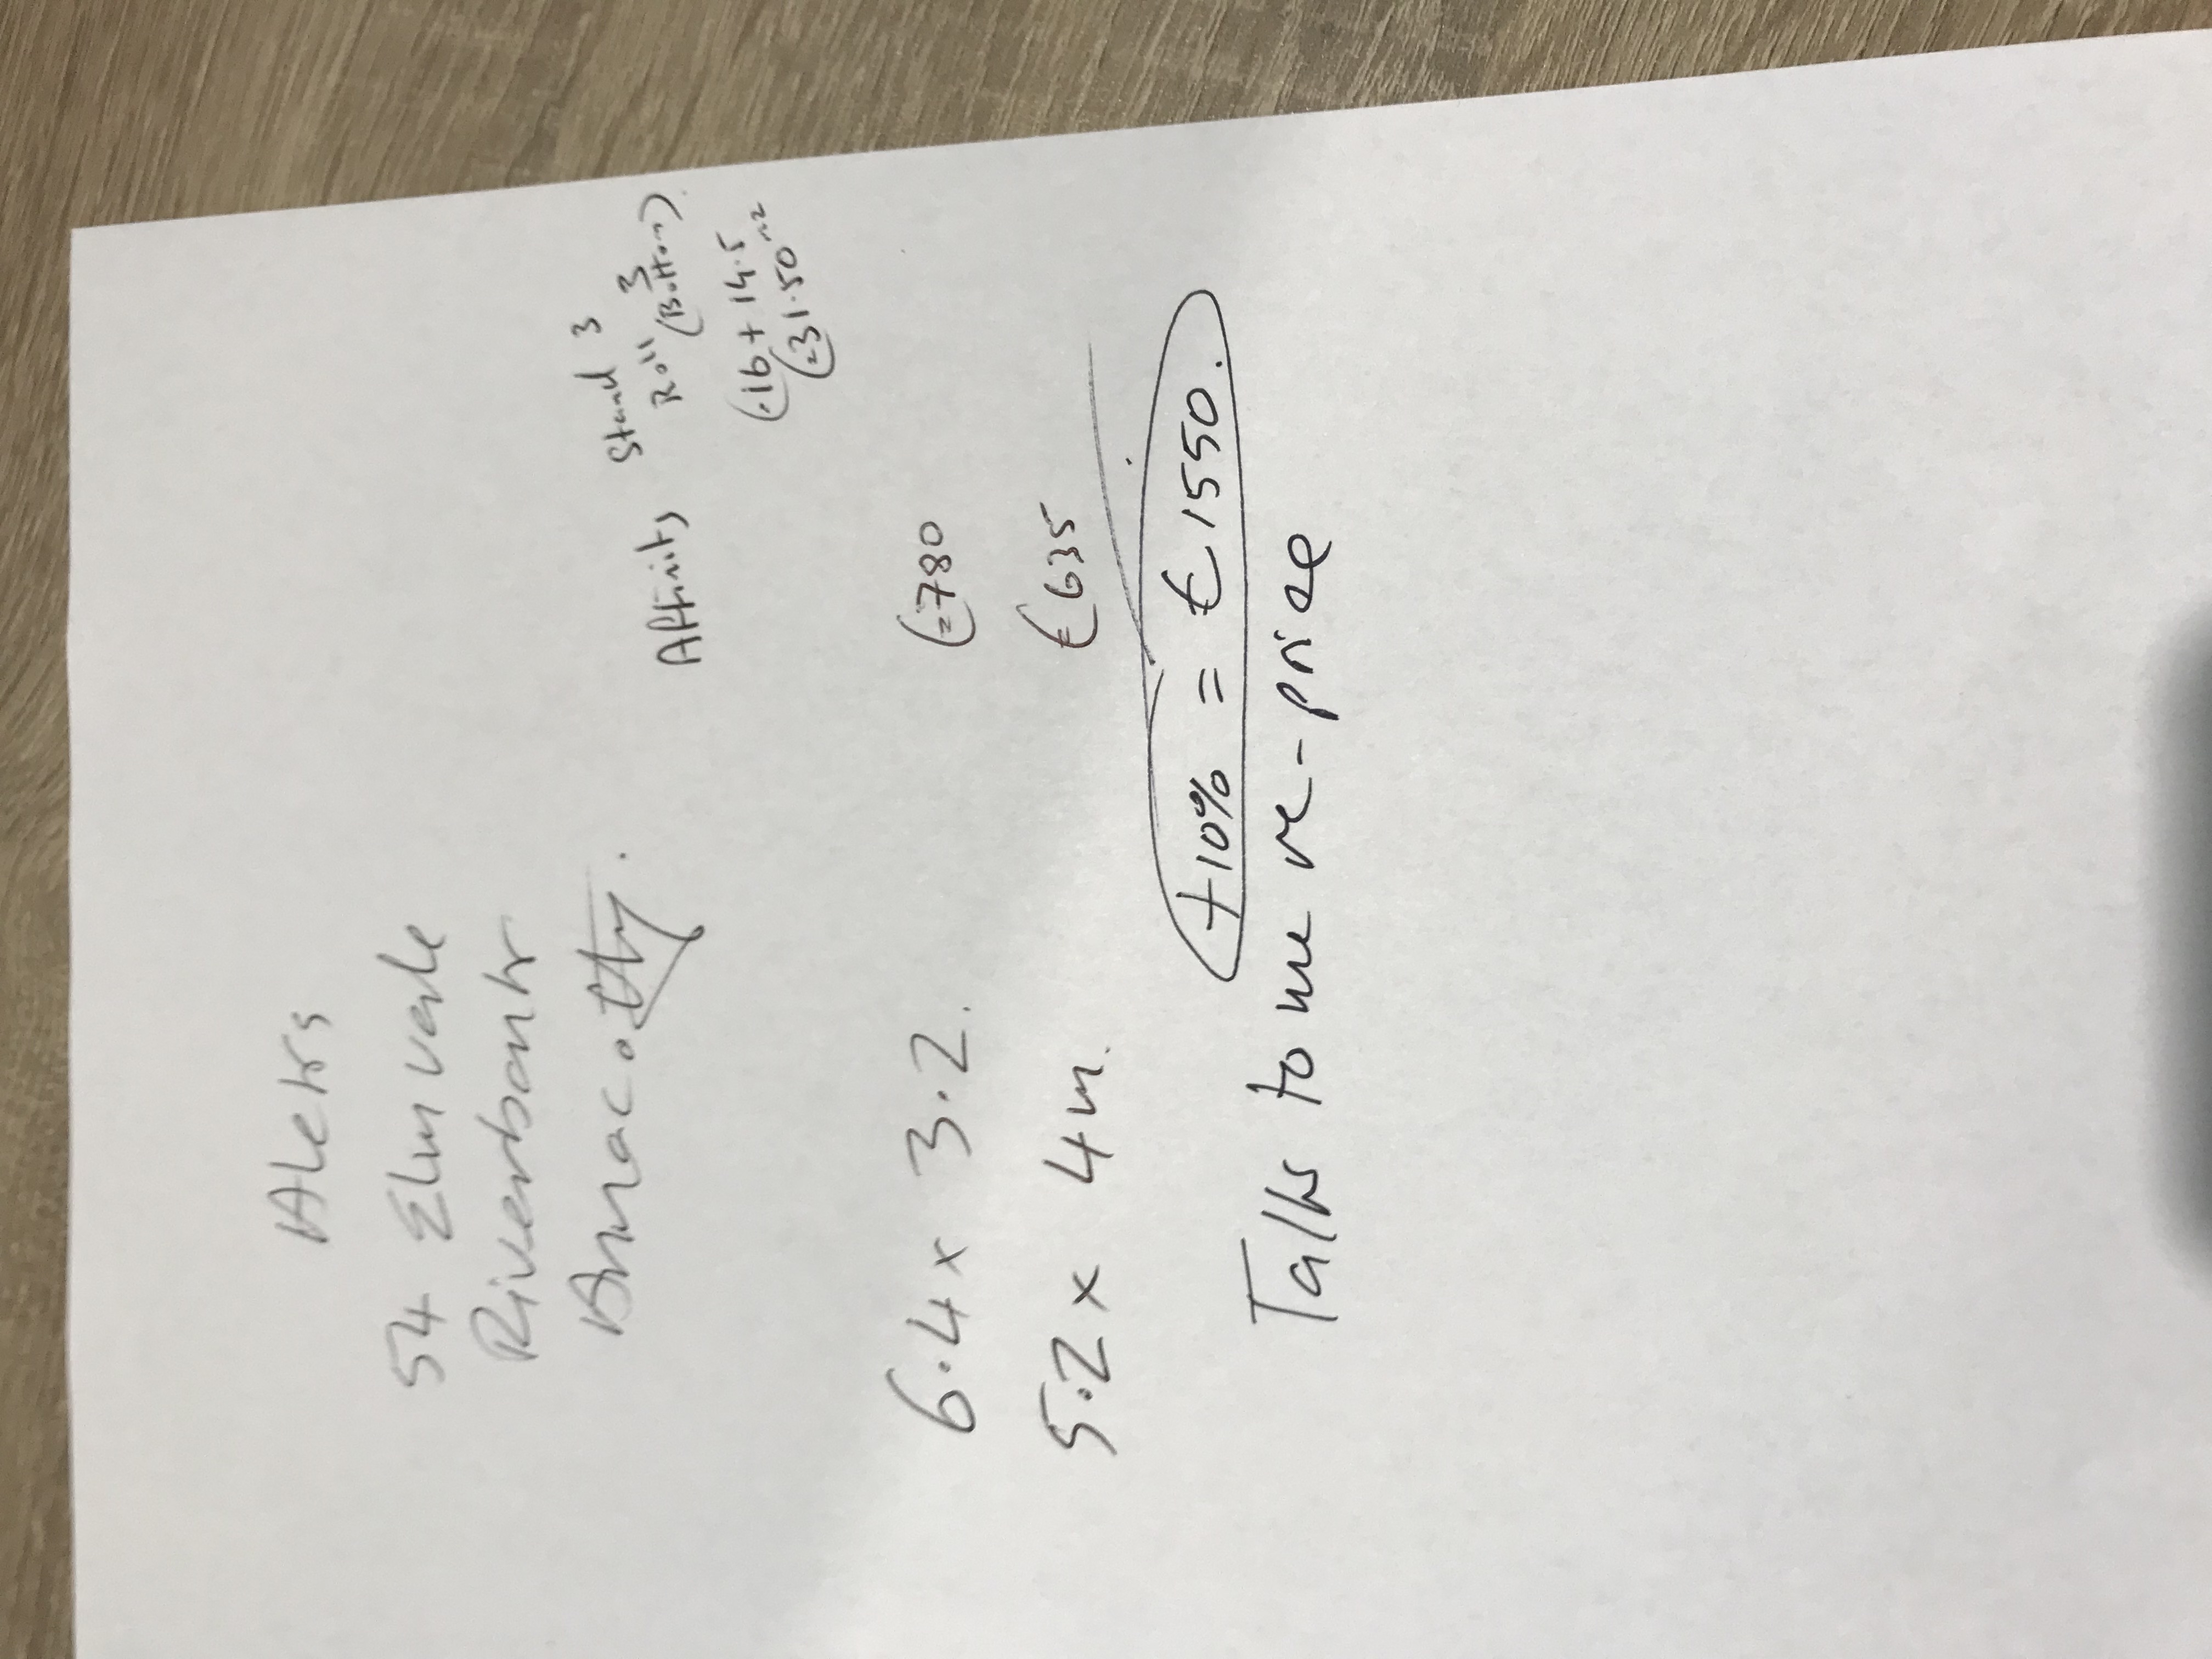 Aleks
54 Elm vale
Riverbank
Annacotty.
Affinity Stand 3
Roll 3
(Bottom).
€16 + 14.5
€31.50 m2
6.4 x 3.2. €780
5.2 x 4m. €635
+10% = €1550.
Talk to me re-price